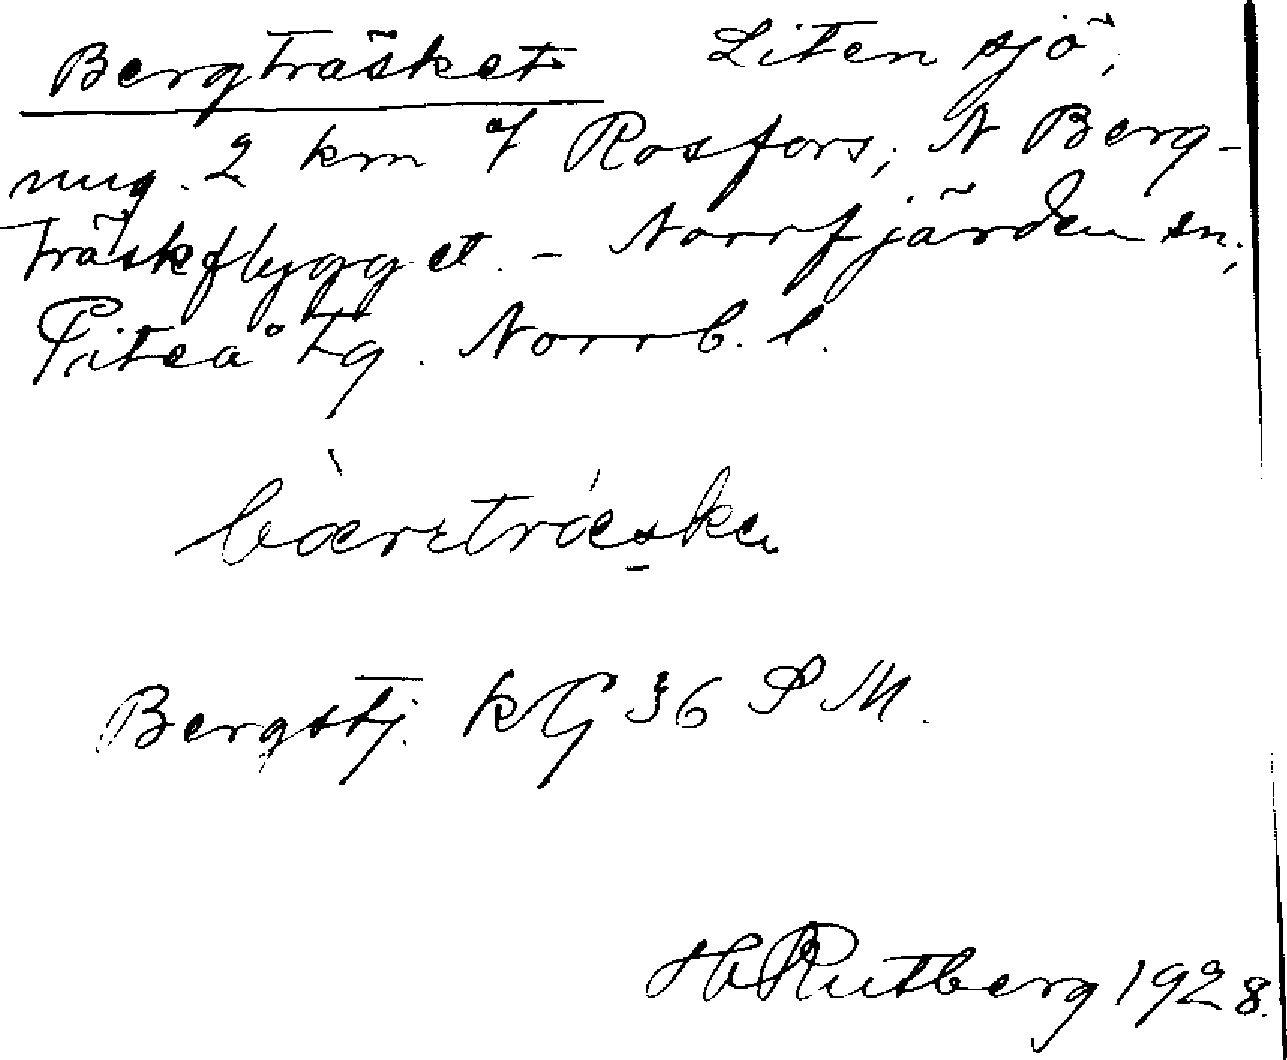 Bergträsket Liten sjö,
ung. 2 km V Rosfors, N Berg-
träskflygget. - Norrfjärden sn,
Piteå tg. Norrb. l.
bæ̀rtrǽskə
Bergstj. kG 36 S M.
H Rutberg 1928.